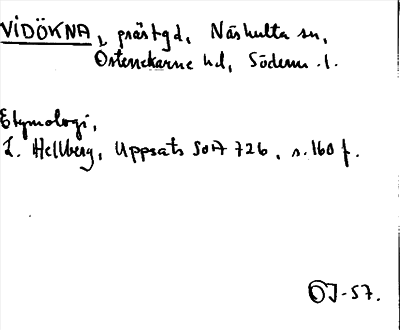 VIDÖKNA, prästgd, Näshulta sn,
Österrekarne hd, Söderm. l.
Etymologi,
L. Hellberg, Uppsats SOA 726, s. 160 f.
OJ-57.